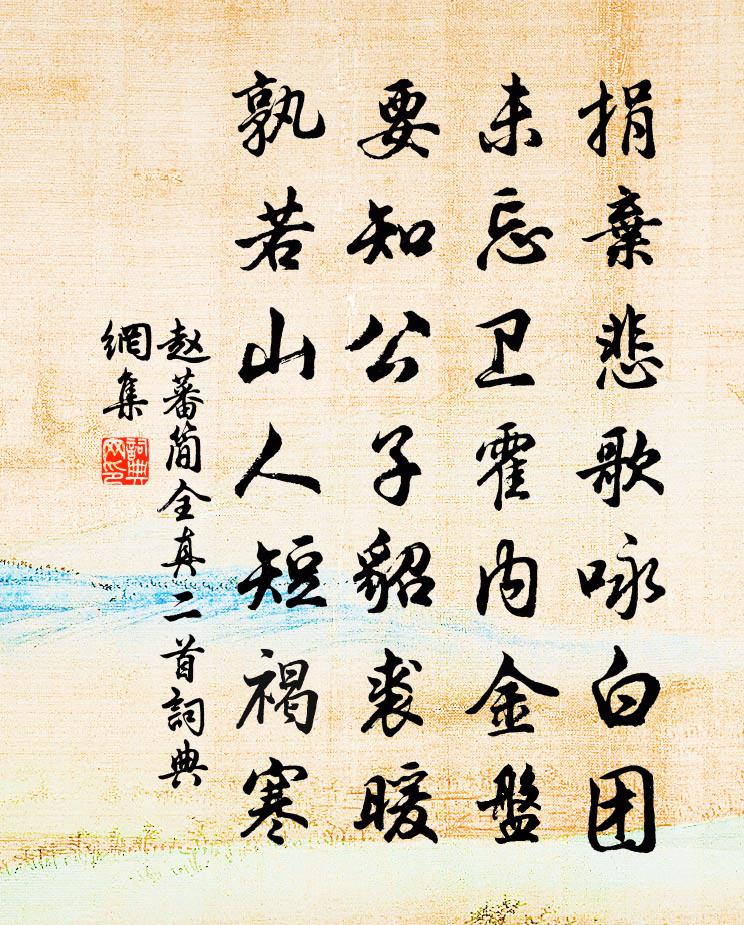 捐棄悲歌咏白团
未忘卫霍内金盤
要知公子貂裘暖
孰若山人短褐寒
赵蕃简全真二首詞典
網集
詞典
网印